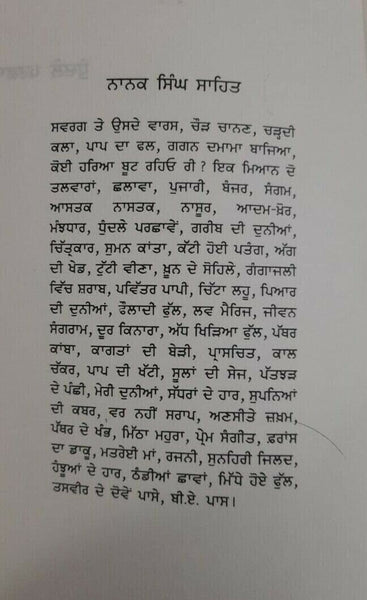 ਨਾਨਕ ਸਿੰਘ ਸਾਹਿਤ
ਸਵਰਗ ਤੇ ਉਸਦੇ ਵਾਰਸ, ਚੌੜ ਚਾਨਣ, ਚੜ੍ਹਦੀ
ਕਲਾ, ਪਾਪ ਦਾ ਫਲ, ਗਗਨ ਦਮਾਮਾ ਬਾਜਿਆ,
ਕੋਈ ਹਰਿਆ ਬੂਟ ਰਹਿਓ ਰੀ ? ਇਕ ਮਿਆਨ ਦੋ
ਤਲਵਾਰਾਂ, ਛਲਾਵਾ, ਪੁਜਾਰੀ, ਬੰਜਰ, ਸੰਗਮ,
ਆਸਤਕ ਨਾਸਤਕ, ਨਾਸੂਰ, ਆਦਮ-ਖ਼ੋਰ,
ਮੰਝਧਾਰ, ਧੁੰਦਲੇ ਪਰਛਾਵੇਂ, ਗਰੀਬ ਦੀ ਦੁਨੀਆਂ,
ਚਿੱਤ੍ਰਕਾਰ, ਸੁਮਨ ਕਾਂਤਾ, ਕੱਟੀ ਹੋਈ ਪਤੰਗ, ਅੱਗ
ਦੀ ਖੇਡ, ਟੁੱਟੀ ਵੀਣਾ, ਖ਼ੂਨ ਦੇ ਸੋਹਿਲੇ, ਗੰਗਾਜਲੀ
ਵਿੱਚ ਸ਼ਰਾਬ, ਪਵਿੱਤਰ ਪਾਪੀ, ਚਿੱਟਾ ਲਹੂ, ਪਿਆਰ
ਦੀ ਦੁਨੀਆਂ, ਫੌਲਾਦੀ ਫੁੱਲ, ਲਵ ਮੈਰਿਜ, ਜੀਵਨ
ਸੰਗਰਾਮ, ਦੂਰ ਕਿਨਾਰਾ, ਅੱਧ ਖਿੜਿਆ ਫੁੱਲ, ਪੱਥਰ
ਕਾਂਬਾ, ਕਾਗਤਾਂ ਦੀ ਬੇੜੀ, ਪ੍ਰਾਸਚਿਤ, ਕਾਲ
ਚੱਕਰ, ਪਾਪ ਦੀ ਖੱਟੀ, ਸੂਲਾਂ ਦੀ ਸੇਜ, ਪੱਤਝੜ
ਦੇ ਪੰਛੀ, ਮੇਰੀ ਦੁਨੀਆਂ, ਸੱਧਰਾਂ ਦੇ ਹਾਰ, ਸੁਪਨਿਆਂ
ਦੀ ਕਬਰ, ਵਰ ਨਹੀਂ ਸਰਾਪ, ਅਣਸੀਤੇ ਜ਼ਖ਼ਮ,
ਪੱਥਰ ਦੇ ਖੰਭ, ਮਿੱਠਾ ਮਹੁਰਾ, ਪ੍ਰੇਮ ਸੰਗੀਤ, ਫ਼ਰਾਂਸ
ਦਾ ਡਾਕੂ, ਮਤਰੇਈ ਮਾਂ, ਰਜਨੀ, ਸੁਨਹਿਰੀ ਜਿਲਦ,
ਹੰਝੂਆਂ ਦੇ ਹਾਰ, ਠੰਡੀਆਂ ਛਾਵਾਂ, ਮਿੱਧੇ ਹੋਏ ਫੁੱਲ,
ਤਸਵੀਰ ਦੇ ਦੋਵੇਂ ਪਾਸੇ, ਬੀ.ਏ. ਪਾਸ।